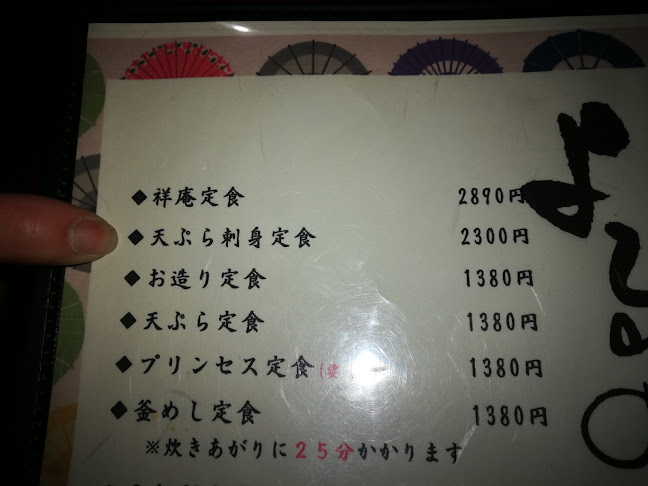 ◆祥庵定食 2890円
◆天ぷら刺身定食 2300円
◆お造り定食 1380円
◆天ぷら定食 1380円
◆プリンセス定食 1380円
◆釜めし定食 1380円
※炊きあがりに25分かかります